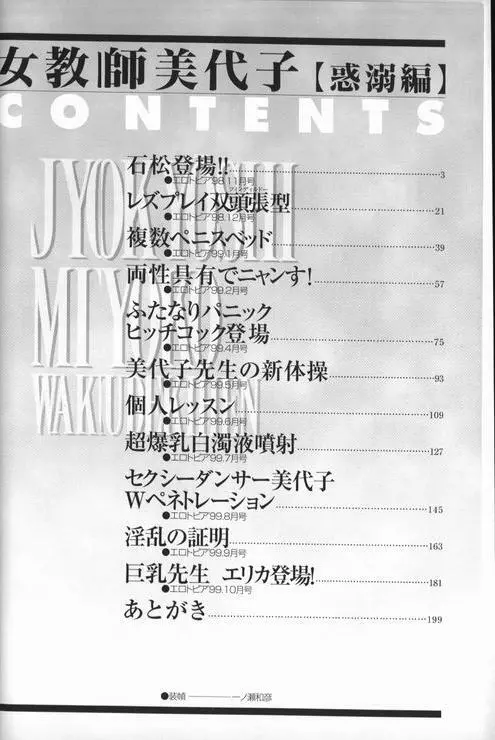 女教師美代子【惑溺編】
CONTENTS
JYOKYOSHI
MIYOKO
WAKUDEKI
石松登場!! 3
●エロトピア'98.11月号
レズプレイ双頭張型 21
●エロトピア'98.12月号
複数ペニスベッド 39
●エロトピア'99.1月号
両性具有でニャンす! 57
●エロトピア'99.2月号
ふたなりパニック
ヒッチコック登場 75
●エロトピア'99.4月号
美代子先生の新体操 93
●エロトピア'99.5月号
個人レッスン 109
●エロトピア'99.6月号
超爆乳白濁液噴射 127
●エロトピア'99.7月号
セクシーダンサー美代子
Wペネトレーション 145
●エロトピア'99.8月号
淫乱の証明 163
●エロトピア'99.9月号
巨乳先生 エリカ登場! 181
●エロトピア'99.10月号
あとがき 199
●装幀 一ノ瀬和彦